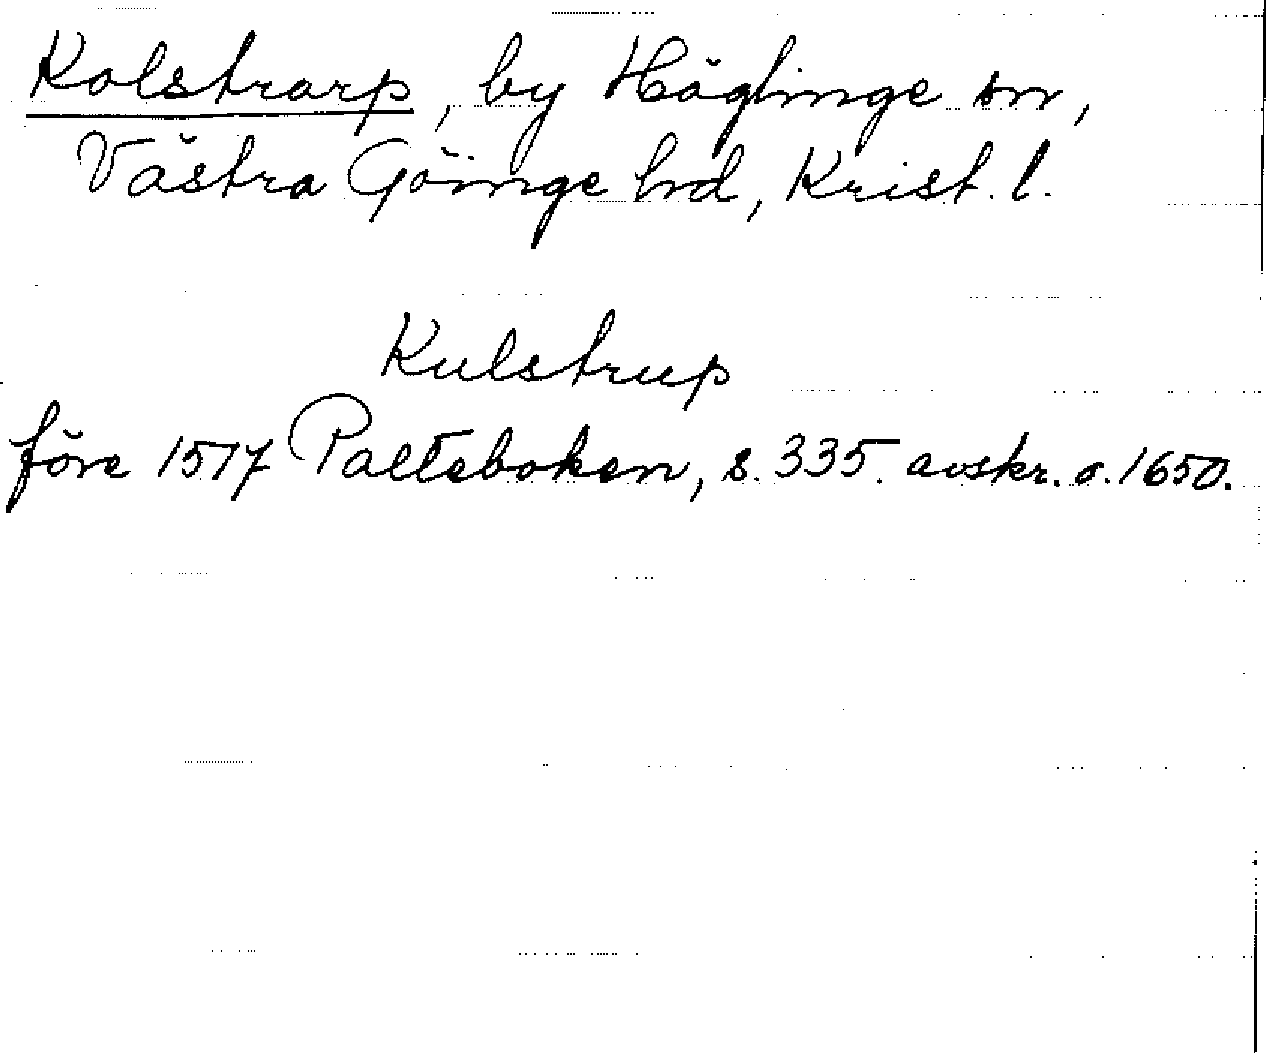 Kolstrarp, by Häglinge sn,
Västra Göinge hd, Krist. l.
Kulstrup
före 1517 Palteboken, s. 335. avskr. o. 1650.